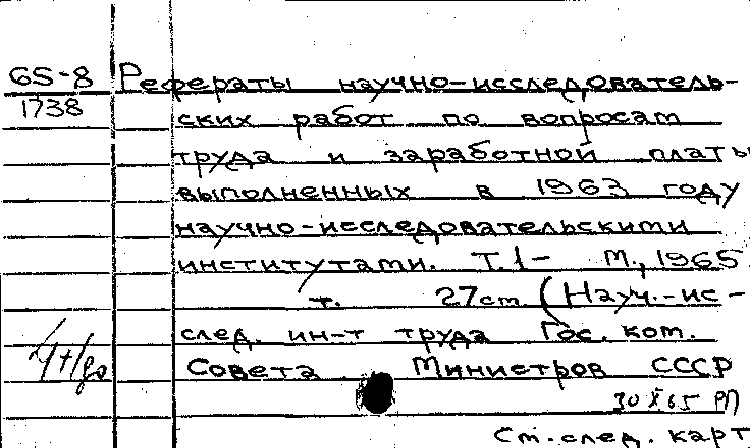 65-8 Рефераты научно-исследователь-
1738 ских работ по вопросам
труда и заработной платы
выполненных в 1963 году
научно-исследовательскими
институтами. Т.1- М., 1965
т. 27см (Науч.-ис-
след. ин-т труда Гос. ком.
Совета Министров СССР
30 X 65 РП
См. след. карт